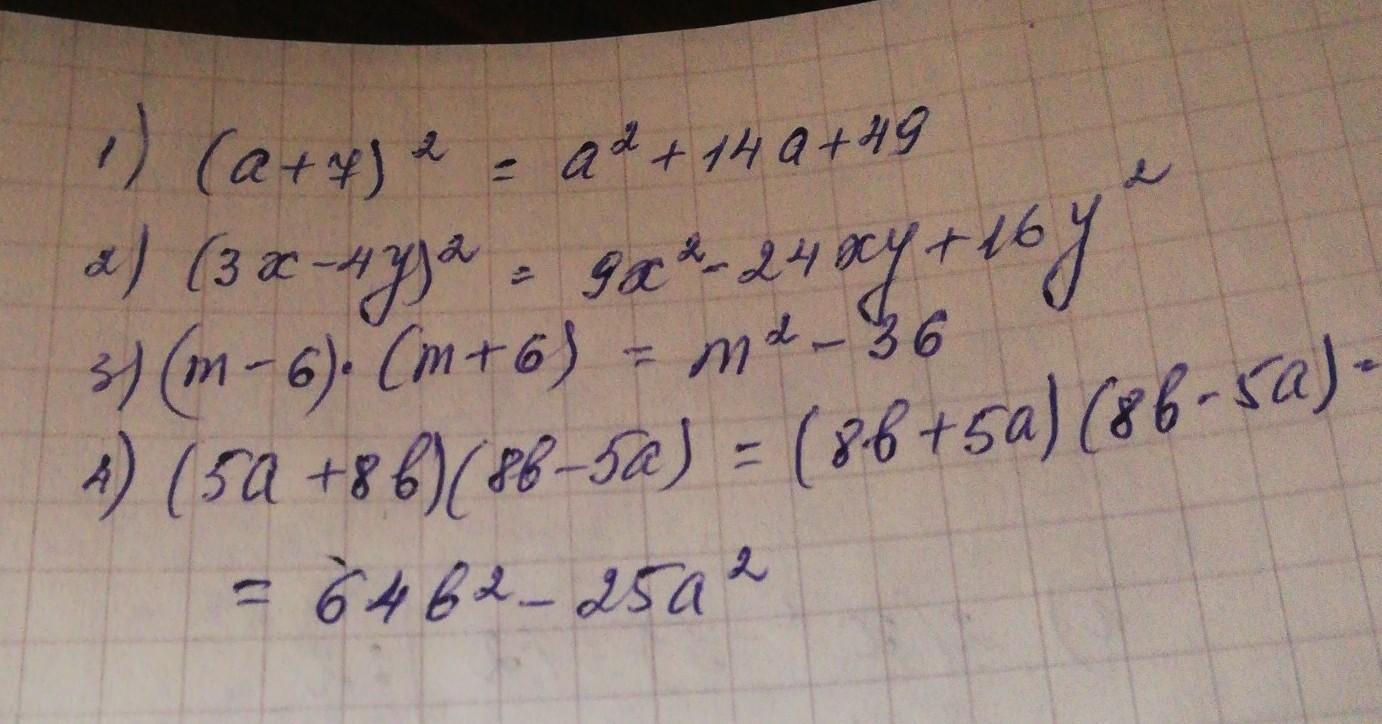 1) (a+7)² = a²+14a+49
2) (3x-4y)² = 9x²-24xy+16y²
3) (m-6)·(m+6) = m²-36
4) (5a+8b)(8b-5a) = (8b+5a)(8b-5a)=
= 64b²-25a²